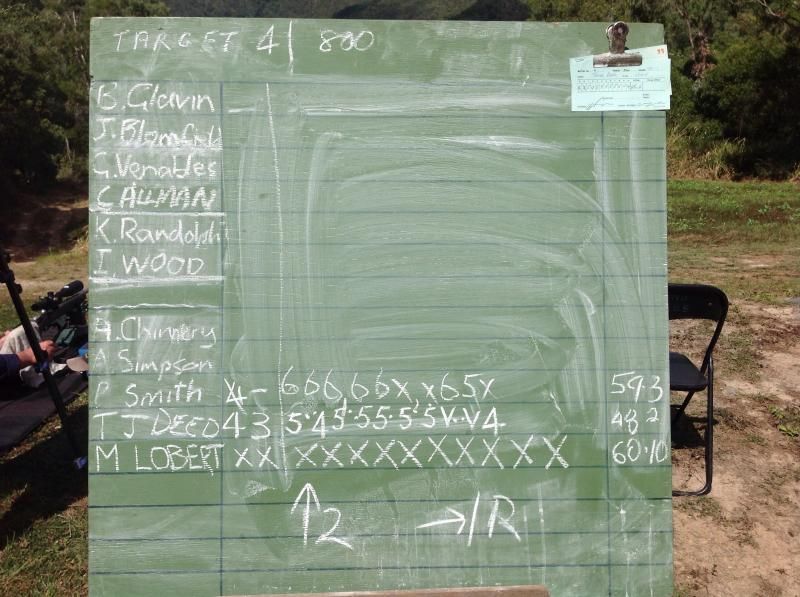 TARGET 4 | 800
B. Glavin
J. Blomfield
G. Venables
C ALLMAN
K. Randolph
I. WOOD
A. Chimery
A. Simpson
P Smith X- 66666xx65x 593
T J DEED 43 5.45.55.55V.V4 48 2
M LOBERT XX XXXXXXXXXX 60.10
↑2 →1R